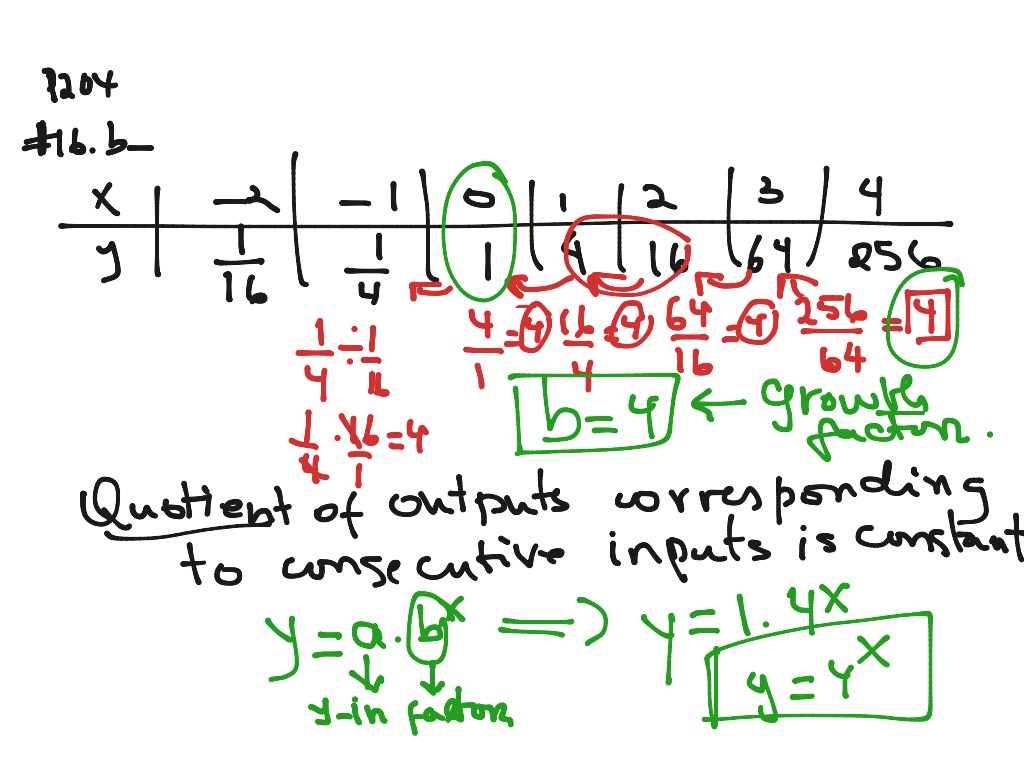 P204
#16.b
x | -2 | -1 | 0 | 1 | 2 | 3 | 4
y | 1/16 | 1/4 | 1 | 4 | 16 | 64 | 256
1/4 ÷ 1/16
4/1 = 4 16/4 = 4 64/16 = 4 256/64 = 4
1/4 · 16/1 = 4
b = 4 ← growth
factor.
Quotient of outputs corresponding
to consecutive inputs is constant
y = a · b^x ⟹ y = 1 · 4^x
y = 4^x
y-in